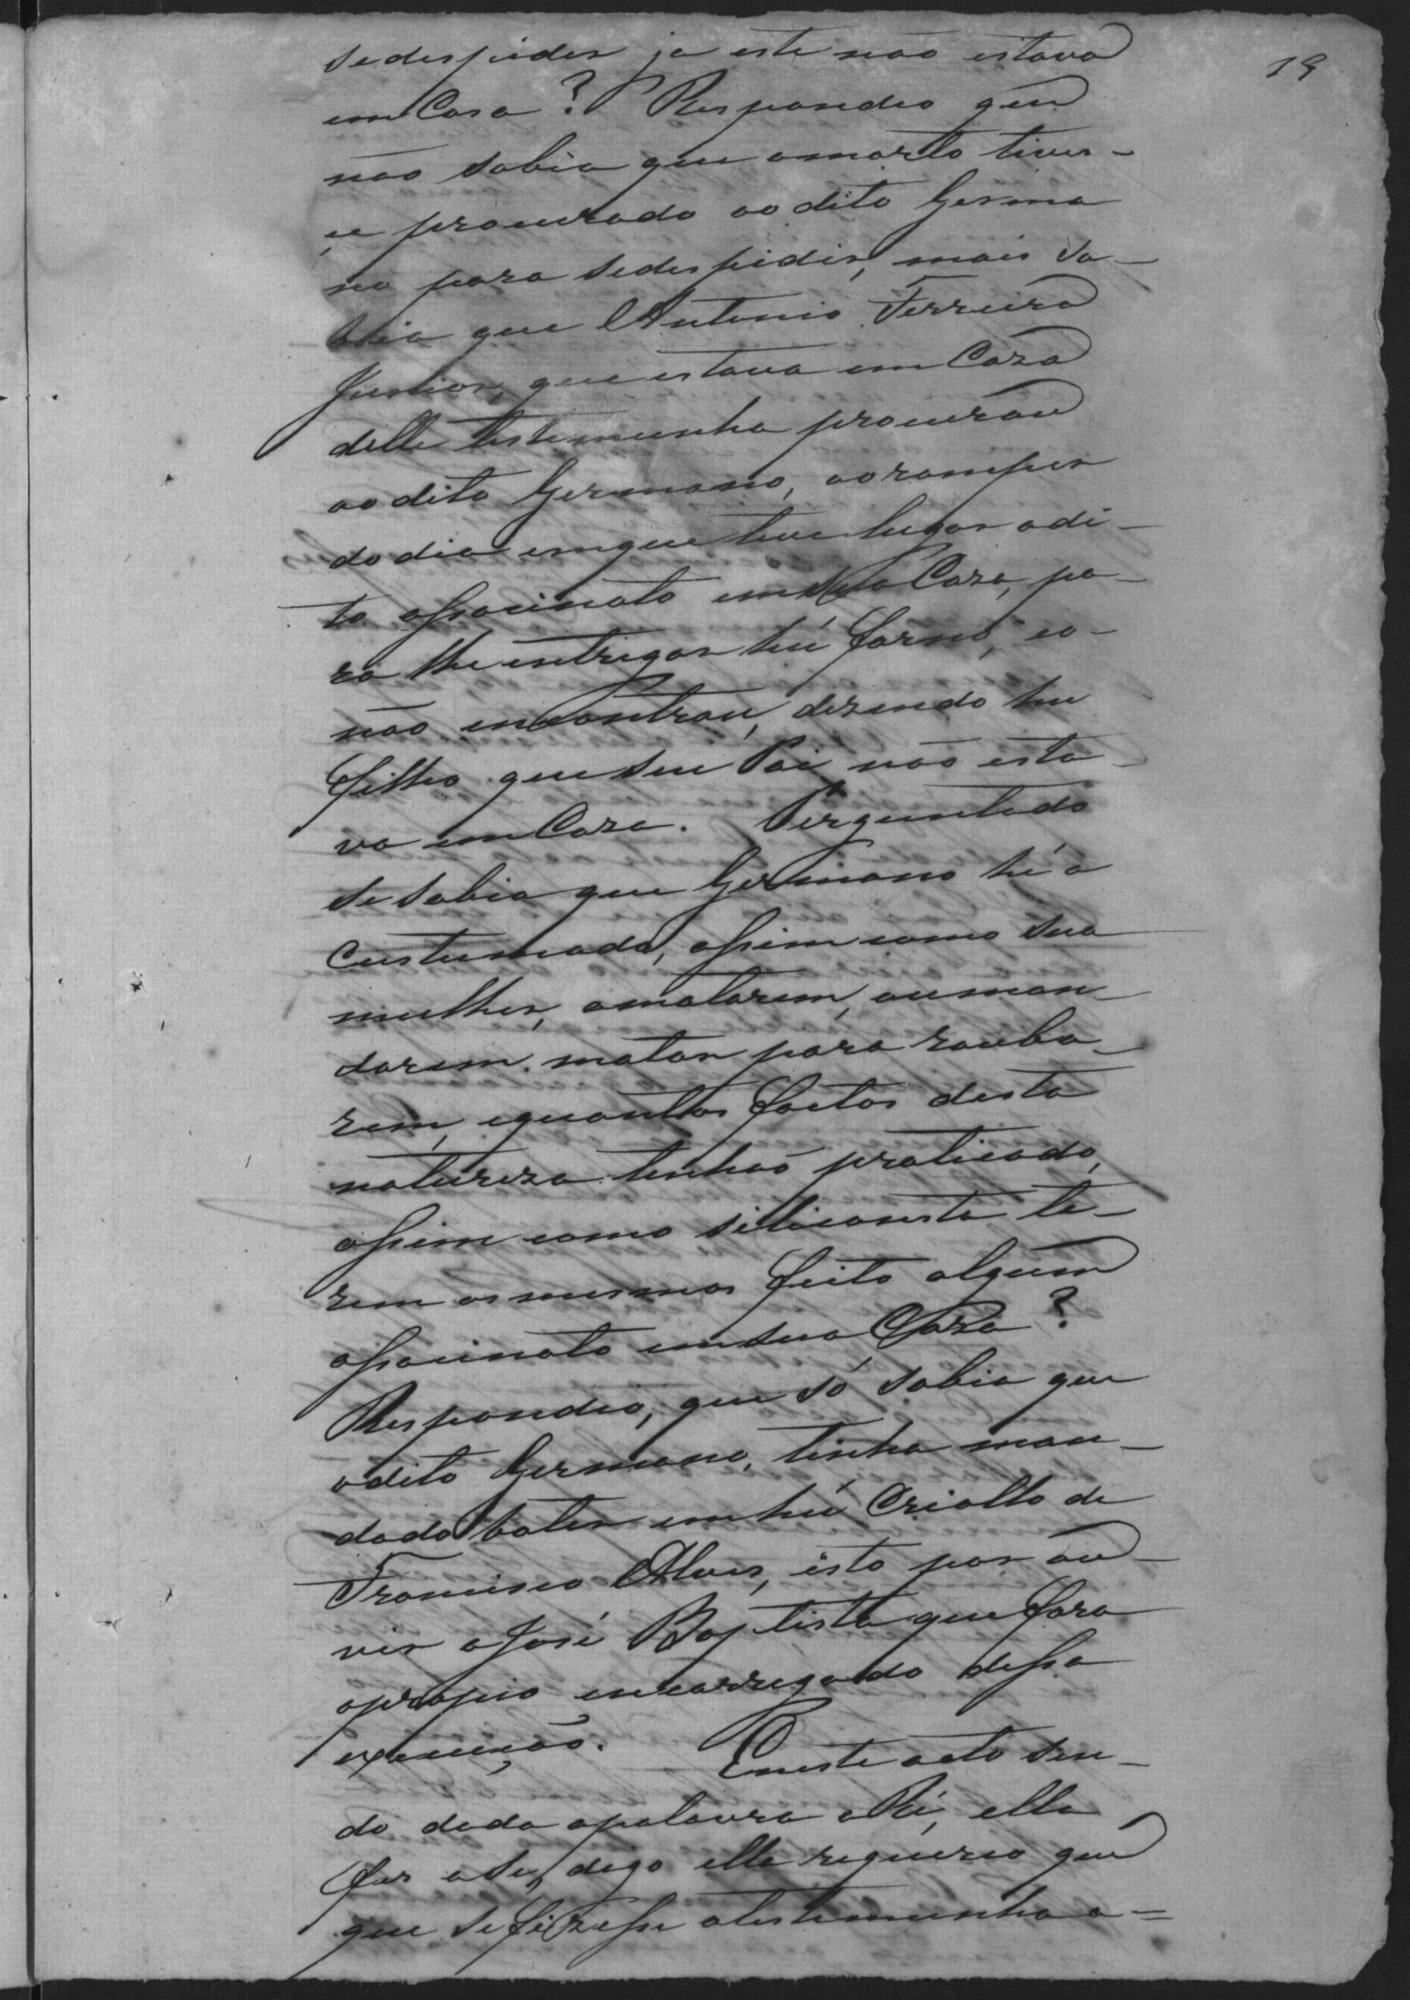 19
sedespider ja este não estava
em Casa? Respondeo que
não sabia que o morto tives-
se procurado ao dito Germa
no para sedespidir, mais sa-
bia que Antonio Ferreira
Junior, que estava em Caza
delle testemunha procurou
ao dito Germano, ao romper
do dia em que teve lugar o di-
to assacinato em sua Caza, pa-
ra lhe entregar hú forno, e o
não encontrou, dizendo hu
filho que seu Pai não esta-
va em Caza. Perguntado
se sabia que Germano hé a
custumado, assim como sua
mulher, a matarem, ou man-
darem matar para rouba-
rem, e quantos factos desta
natureza tenhão praticado,
assim como se lhe consta te-
rem os mesmos feito algum
assacinato em sua Caza?
Respondeo, que só sabia que
o dito Germano, tinha man-
dado bater em hú Criollo de
Francisco Alves, isto por ou-
vir a José Baptista que fora
o propio encarregado dessa
execução. Eneste acto sen-
do dada a palavra a Ré, ella
por a se, digo elle requereo que
que se fizesse a testemunha a=